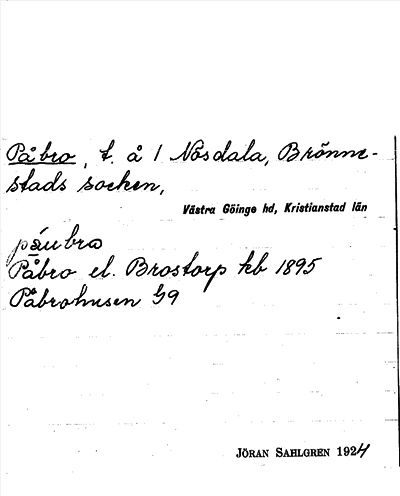 Påbro, t. å 1 Nösdala, Brönne-
stads socken,
Västra Göinge hd, Kristianstad län
påubro
Påbro el. Brostorp kb 1895
Påbrohusen 59
JÖRAN SAHLGREN 1924